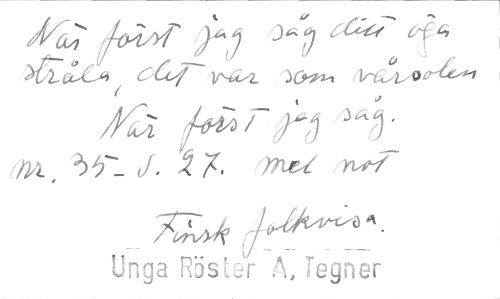 När först jag såg ditt öga
stråla, det var som vårsolen
När först jag såg.
nr. 35 - S. 27. med not
Finsk folkvisa.
Unga Röster A, Tegner